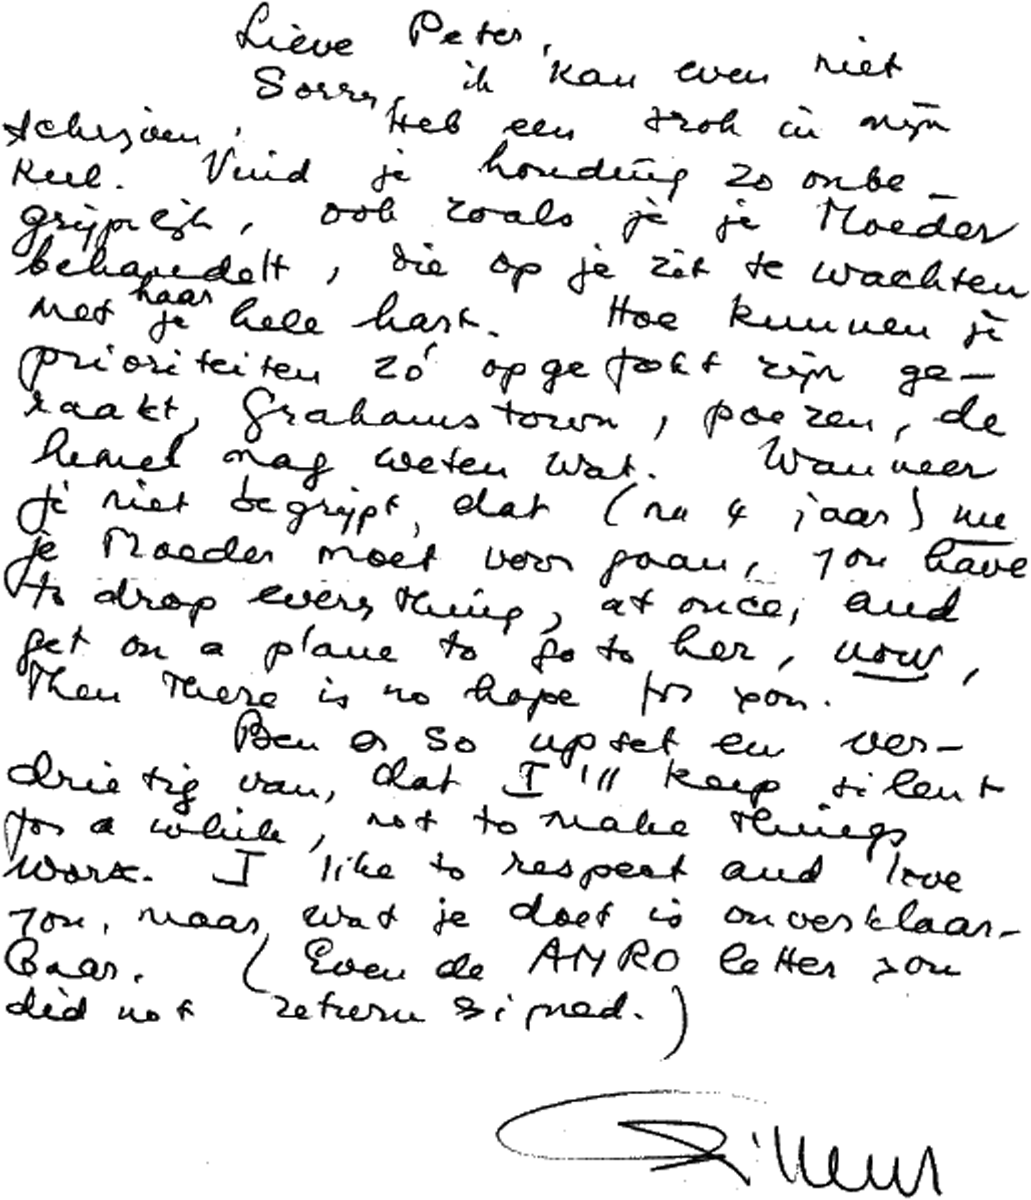 Lieve Peter,
Sorry, ik kan even niet
schrijven, Heb een brok in mijn
keel. Vind je houding zo onbe-
grijpelijk, ook zoals je je Moeder
behandelt, die op je zit te wachten
met je haar hele hart. Hoe kunnen je
prioriteiten zó opgefokt zijn ge-
raakt, Grahamstown, poezen, de
hemel mag weten wat. Wanneer
je niet begrijpt, dat (na 4 jaar) nu
je Moeder moet voor gaan, you have
to drop everything, at once, and
get on a plane to go to her, now,
Then there is no hope for you.
Ben er so upset en ver-
drietig van, dat I'll keep silent
for a while, not to make things
worse. I like to respect and love
you, maar wat je doet is onverklaar-
baar. (Even de AMRO letter you
did not return signed.)
Willem